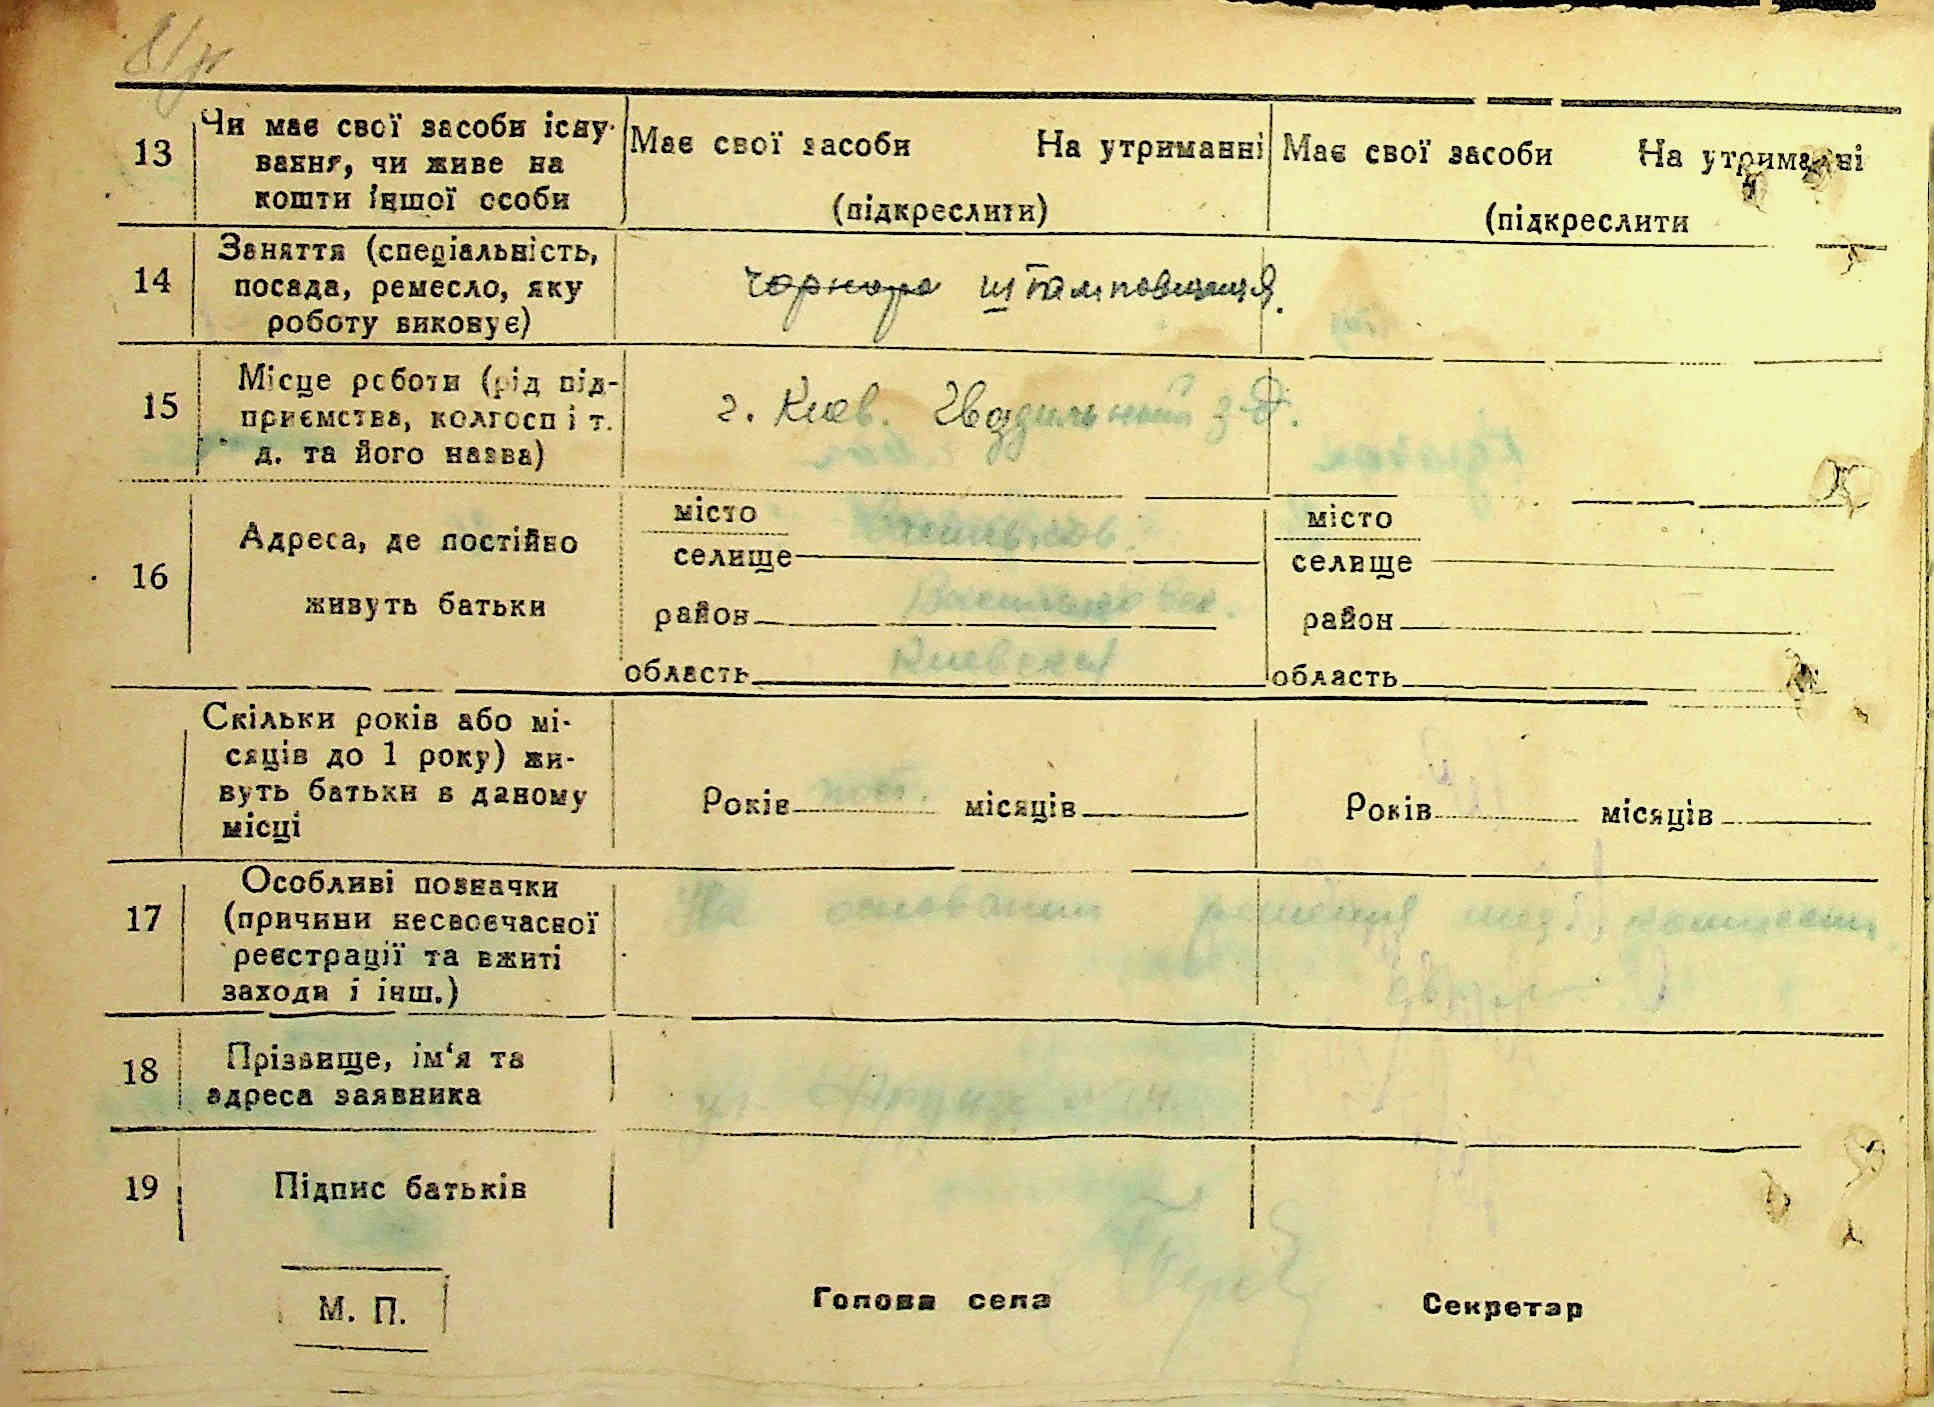 13
Чи має свої засоби існу-
вання, чи живе на
кошти іншої особи
Має свої засоби На утриманні
(підкреслити)
Має свої засоби На утриманні
(підкреслити
14
Заняття (спеціальність,
посада, ремесло, яку
роботу виконує)
штамповщиця.
15
Місце роботи (рід під-
приємства, колгосп і т.
д. та його назва)
г. Киев. Гвоздильный з-д.
16
Адреса, де постійно
живуть батьки
місто
селище
район
область Киевская
місто
селище
район
область
Скільки років або мі-
сяців до 1 року) жи-
вуть батьки в даному
місці
Років пост. місяців
Років місяців
17
Особливі позначки
(причини несвоєчасної
реєстрації та вжиті
заходи і інш.)
На основании решения мед. комиссии
18
Прізвище, ім'я та
адреса заявника
19
Підпис батьків
М. П.
Голова села
Секретар